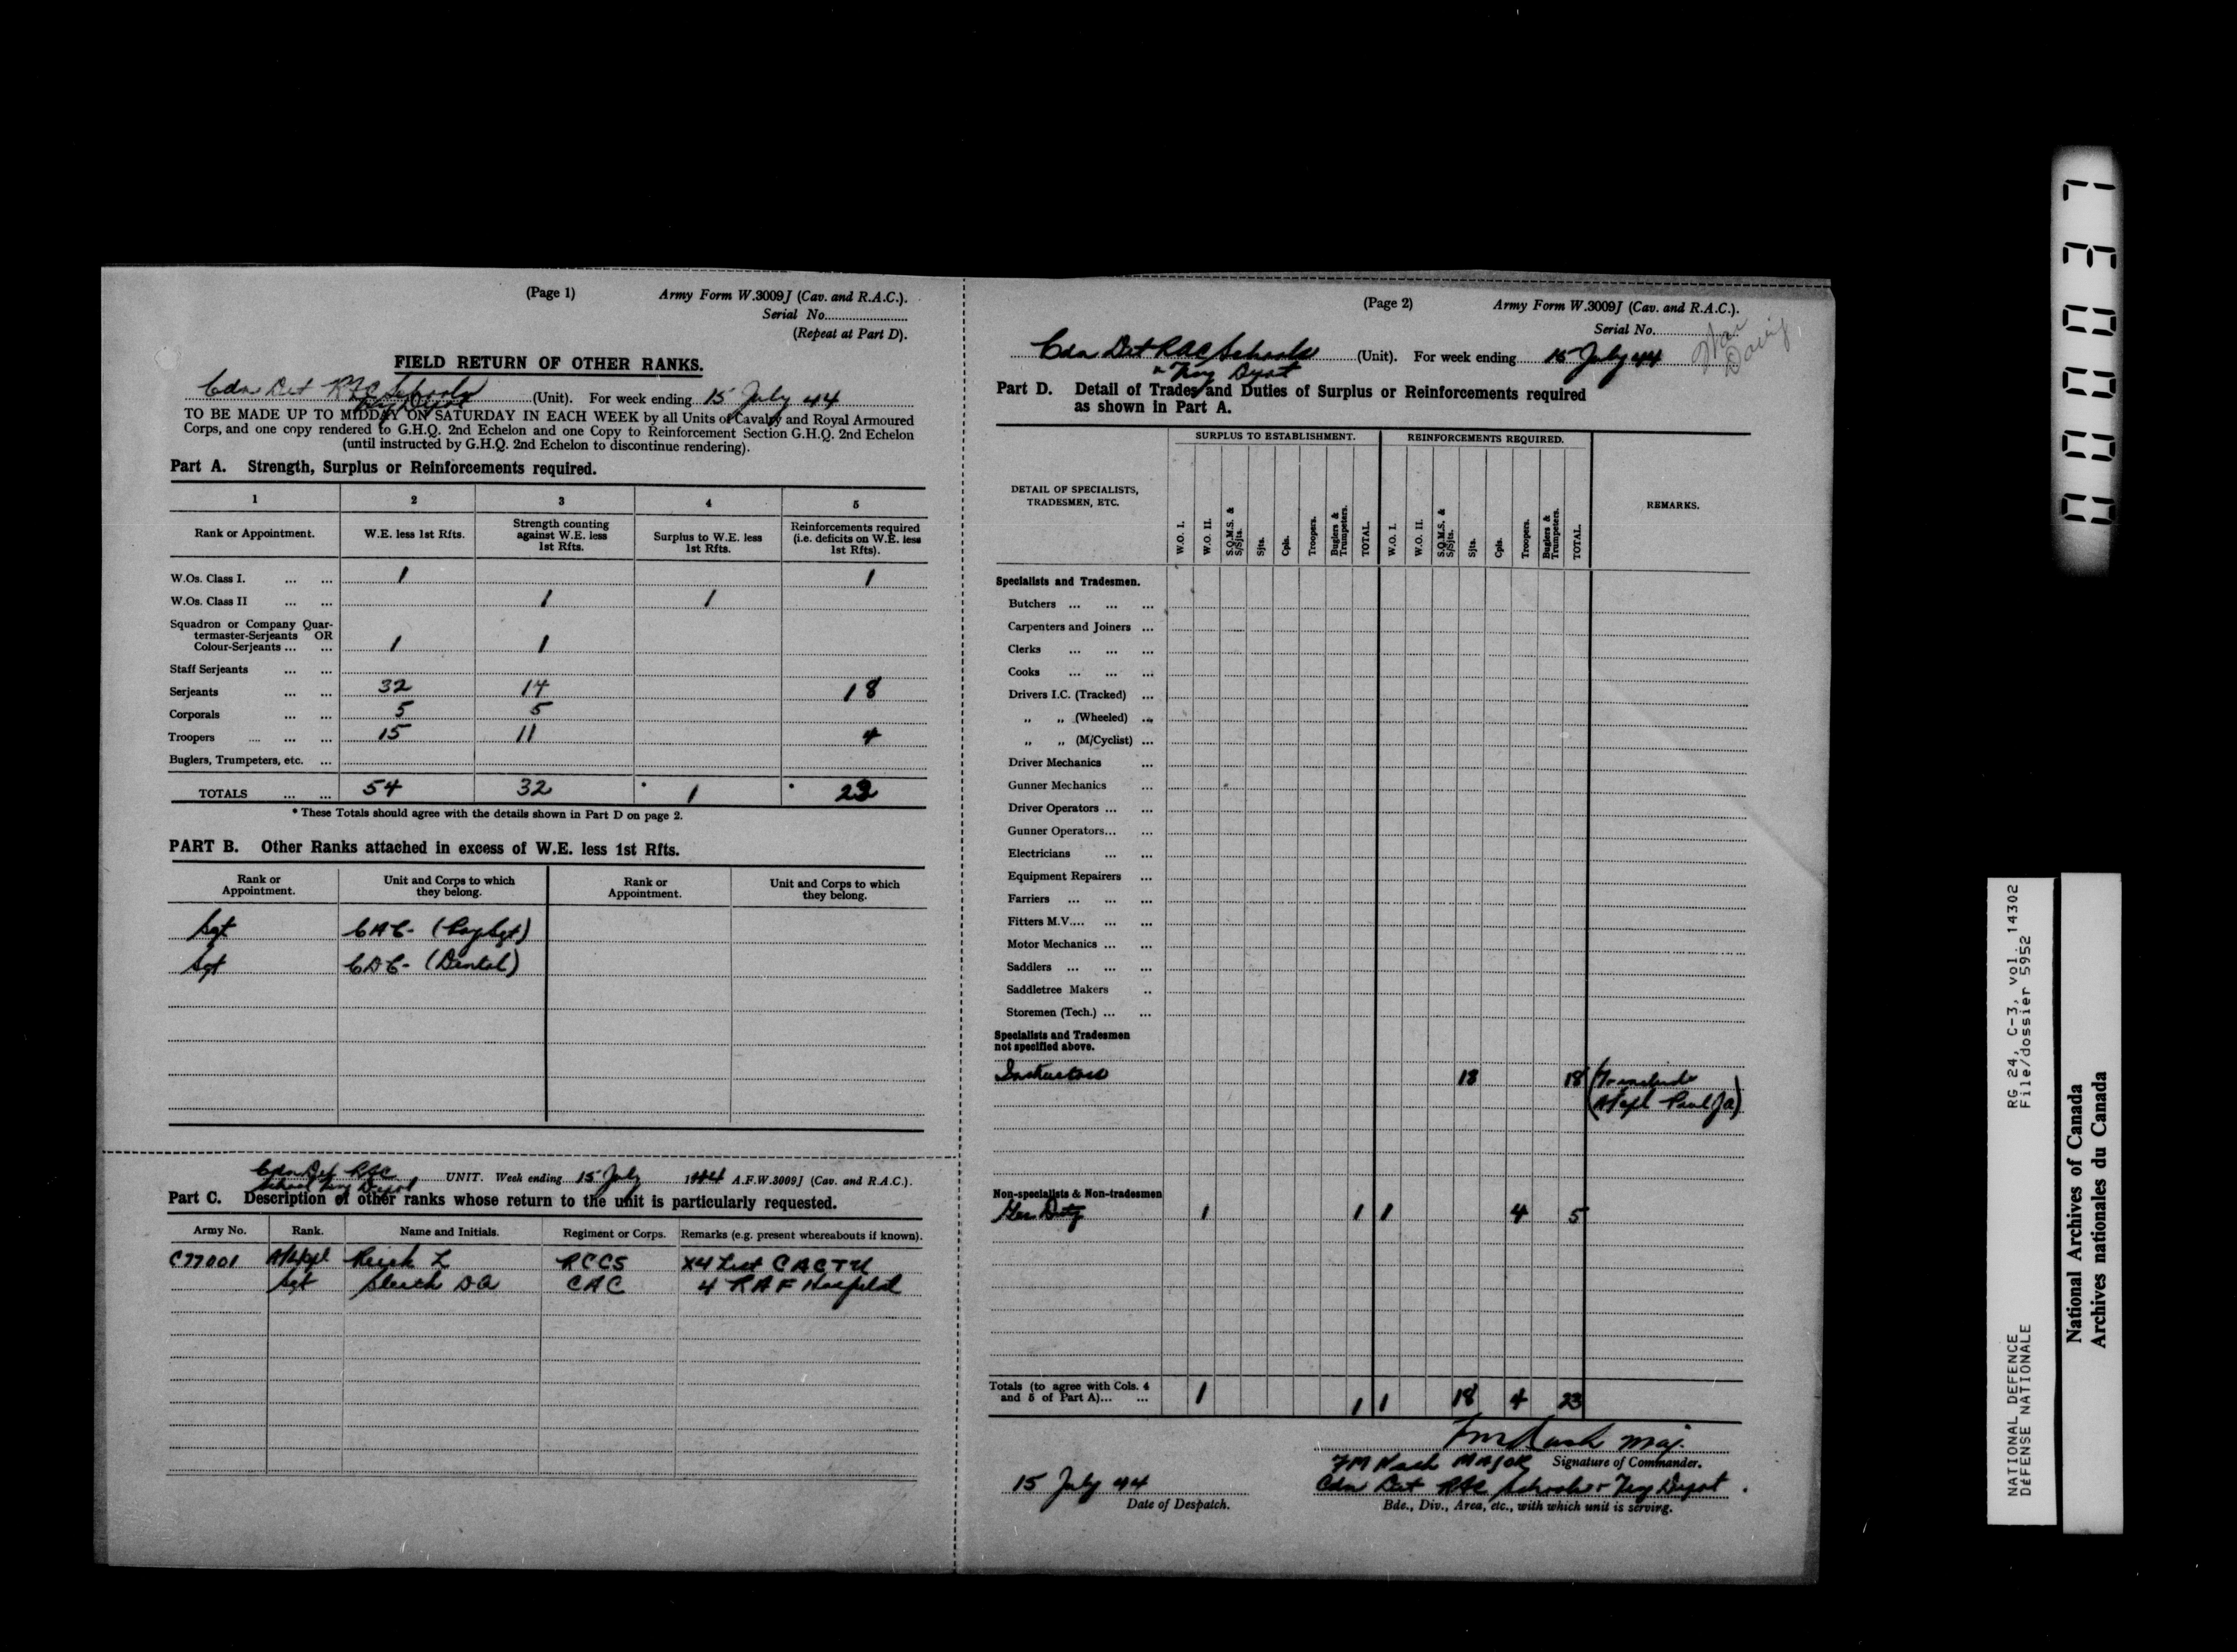 (Page 1) Army Form W.3009J (Cav. and R.A.C.).
Serial No.
(Repeat at Part D).
FIELD RETURN OF OTHER RANKS.
Cdn Det RAC Schools (Unit). For week ending 15 July 44
Trg Depot
TO BE MADE UP TO MIDDAY ON SATURDAY IN EACH WEEK by all Units of Cavalry and Royal Armoured
Corps, and one copy rendered to G.H.Q. 2nd Echelon and one Copy to Reinforcement Section G.H.Q. 2nd Echelon
(until instructed by G.H.Q. 2nd Echelon to discontinue rendering).
Part A. Strength, Surplus or Reinforcements required.
1 2 3 4 5
Rank or Appointment. W.E. less 1st Rfts. Strength counting against W.E. less 1st Rfts. Surplus to W.E. less 1st Rfts. Reinforcements required (i.e. deficits on W.E. less 1st Rfts).
W.Os. Class I. ... ... 1 1
W.Os. Class II ... ... 1 1
Squadron or Company Quar-
termaster-Serjeants OR
Colour-Serjeants ... ... 1 1
Staff Serjeants ... ...
Serjeants ... ... 32 14 18
Corporals ... ... 5 5
Troopers ... ... ... 15 11 4
Buglers, Trumpeters, etc. ...
TOTALS ... ... 54 32 * 1 * 23
* These Totals should agree with the details shown in Part D on page 2.
PART B. Other Ranks attached in excess of W.E. less 1st Rfts.
Rank or Appointment. Unit and Corps to which they belong. Rank or Appointment. Unit and Corps to which they belong.
Sgt CAC - (Pay Sgt)
Sgt CDC - (Dental)
Cdn Det RAC UNIT. Week ending 15 July 1944 A.F.W.3009J (Cav. and R.A.C.).
School Trg Depot
Part C. Description of other ranks whose return to the unit is particularly requested.
Army No. Rank. Name and Initials. Regiment or Corps. Remarks (e.g. present whereabouts if known).
C77001 RCCS X4 List CACTU
Sgt CAC 4 RAF Hospital
(Page 2) Army Form W.3009J (Cav. and R.A.C.).
Serial No.
Cdn Det RAC Schools (Unit). For week ending 15 July 44
Trg Depot
Part D. Detail of Trades and Duties of Surplus or Reinforcements required
as shown in Part A.
SURPLUS TO ESTABLISHMENT. REINFORCEMENTS REQUIRED.
DETAIL OF SPECIALISTS, TRADESMEN, ETC. W.O. I. W.O. II. S.Q.M.S. & S/Sjts. Sjts. Cpls. Troopers. Buglers & Trumpeters. TOTAL. W.O. I. W.O. II. S.Q.M.S. & S/Sjts. Sjts. Cpls. Troopers. Buglers & Trumpeters. TOTAL. REMARKS.
Specialists and Tradesmen.
Butchers ... ... ...
Carpenters and Joiners ...
Clerks ... ... ...
Cooks ... ... ...
Drivers I.C. (Tracked) ...
,, ,, (Wheeled) ...
,, ,, (M/Cyclist) ...
Driver Mechanics ...
Gunner Mechanics ...
Driver Operators ... ...
Gunner Operators... ...
Electricians ... ...
Equipment Repairers ...
Farriers ... ... ...
Fitters M.V.... ... ...
Motor Mechanics ... ...
Saddlers ... ... ...
Saddletree Makers ..
Storemen (Tech.) ... ...
Specialists and Tradesmen
not specified above.
Instructors 18 18
Non-specialists & Non-tradesmen
Gen Duty 1 1 1 4 5
Totals (to agree with Cols. 4
and 5 of Part A)... ... 1 1 1 18 4 23
Maj.
Major Signature of Commander.
15 July 44 Cdn Det RAC Schools + Trg Depot
Date of Despatch. Bde., Div., Area, etc., with which unit is serving.
000037
RG 24, C-3, vol. 14302
File/dossier 5952
NATIONAL DEFENCE
DÉFENSE NATIONALE
National Archives of Canada
Archives nationales du Canada